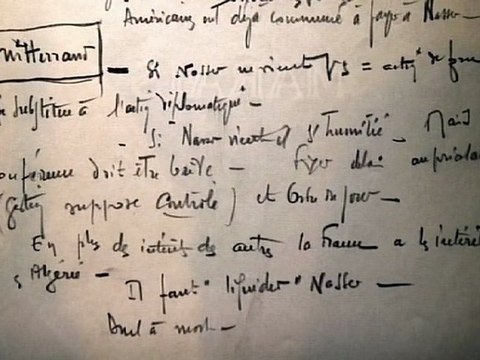 Américains ont déjà commencé à payer à Nasser —
Mitterrand
— Si Nasser ne vient US = action de force
substitue à l'action diplomatique —
- Si Nasser vient il s'humilie — Mais
conférence doit être brève — Fixer délai au préalable
(gestion suppose contrôle) et ordre du jour —
En plus des intérêts des autres la France a les intérêts
Algérie —
Il faut "liquider" Nasser —
Duel à mort —